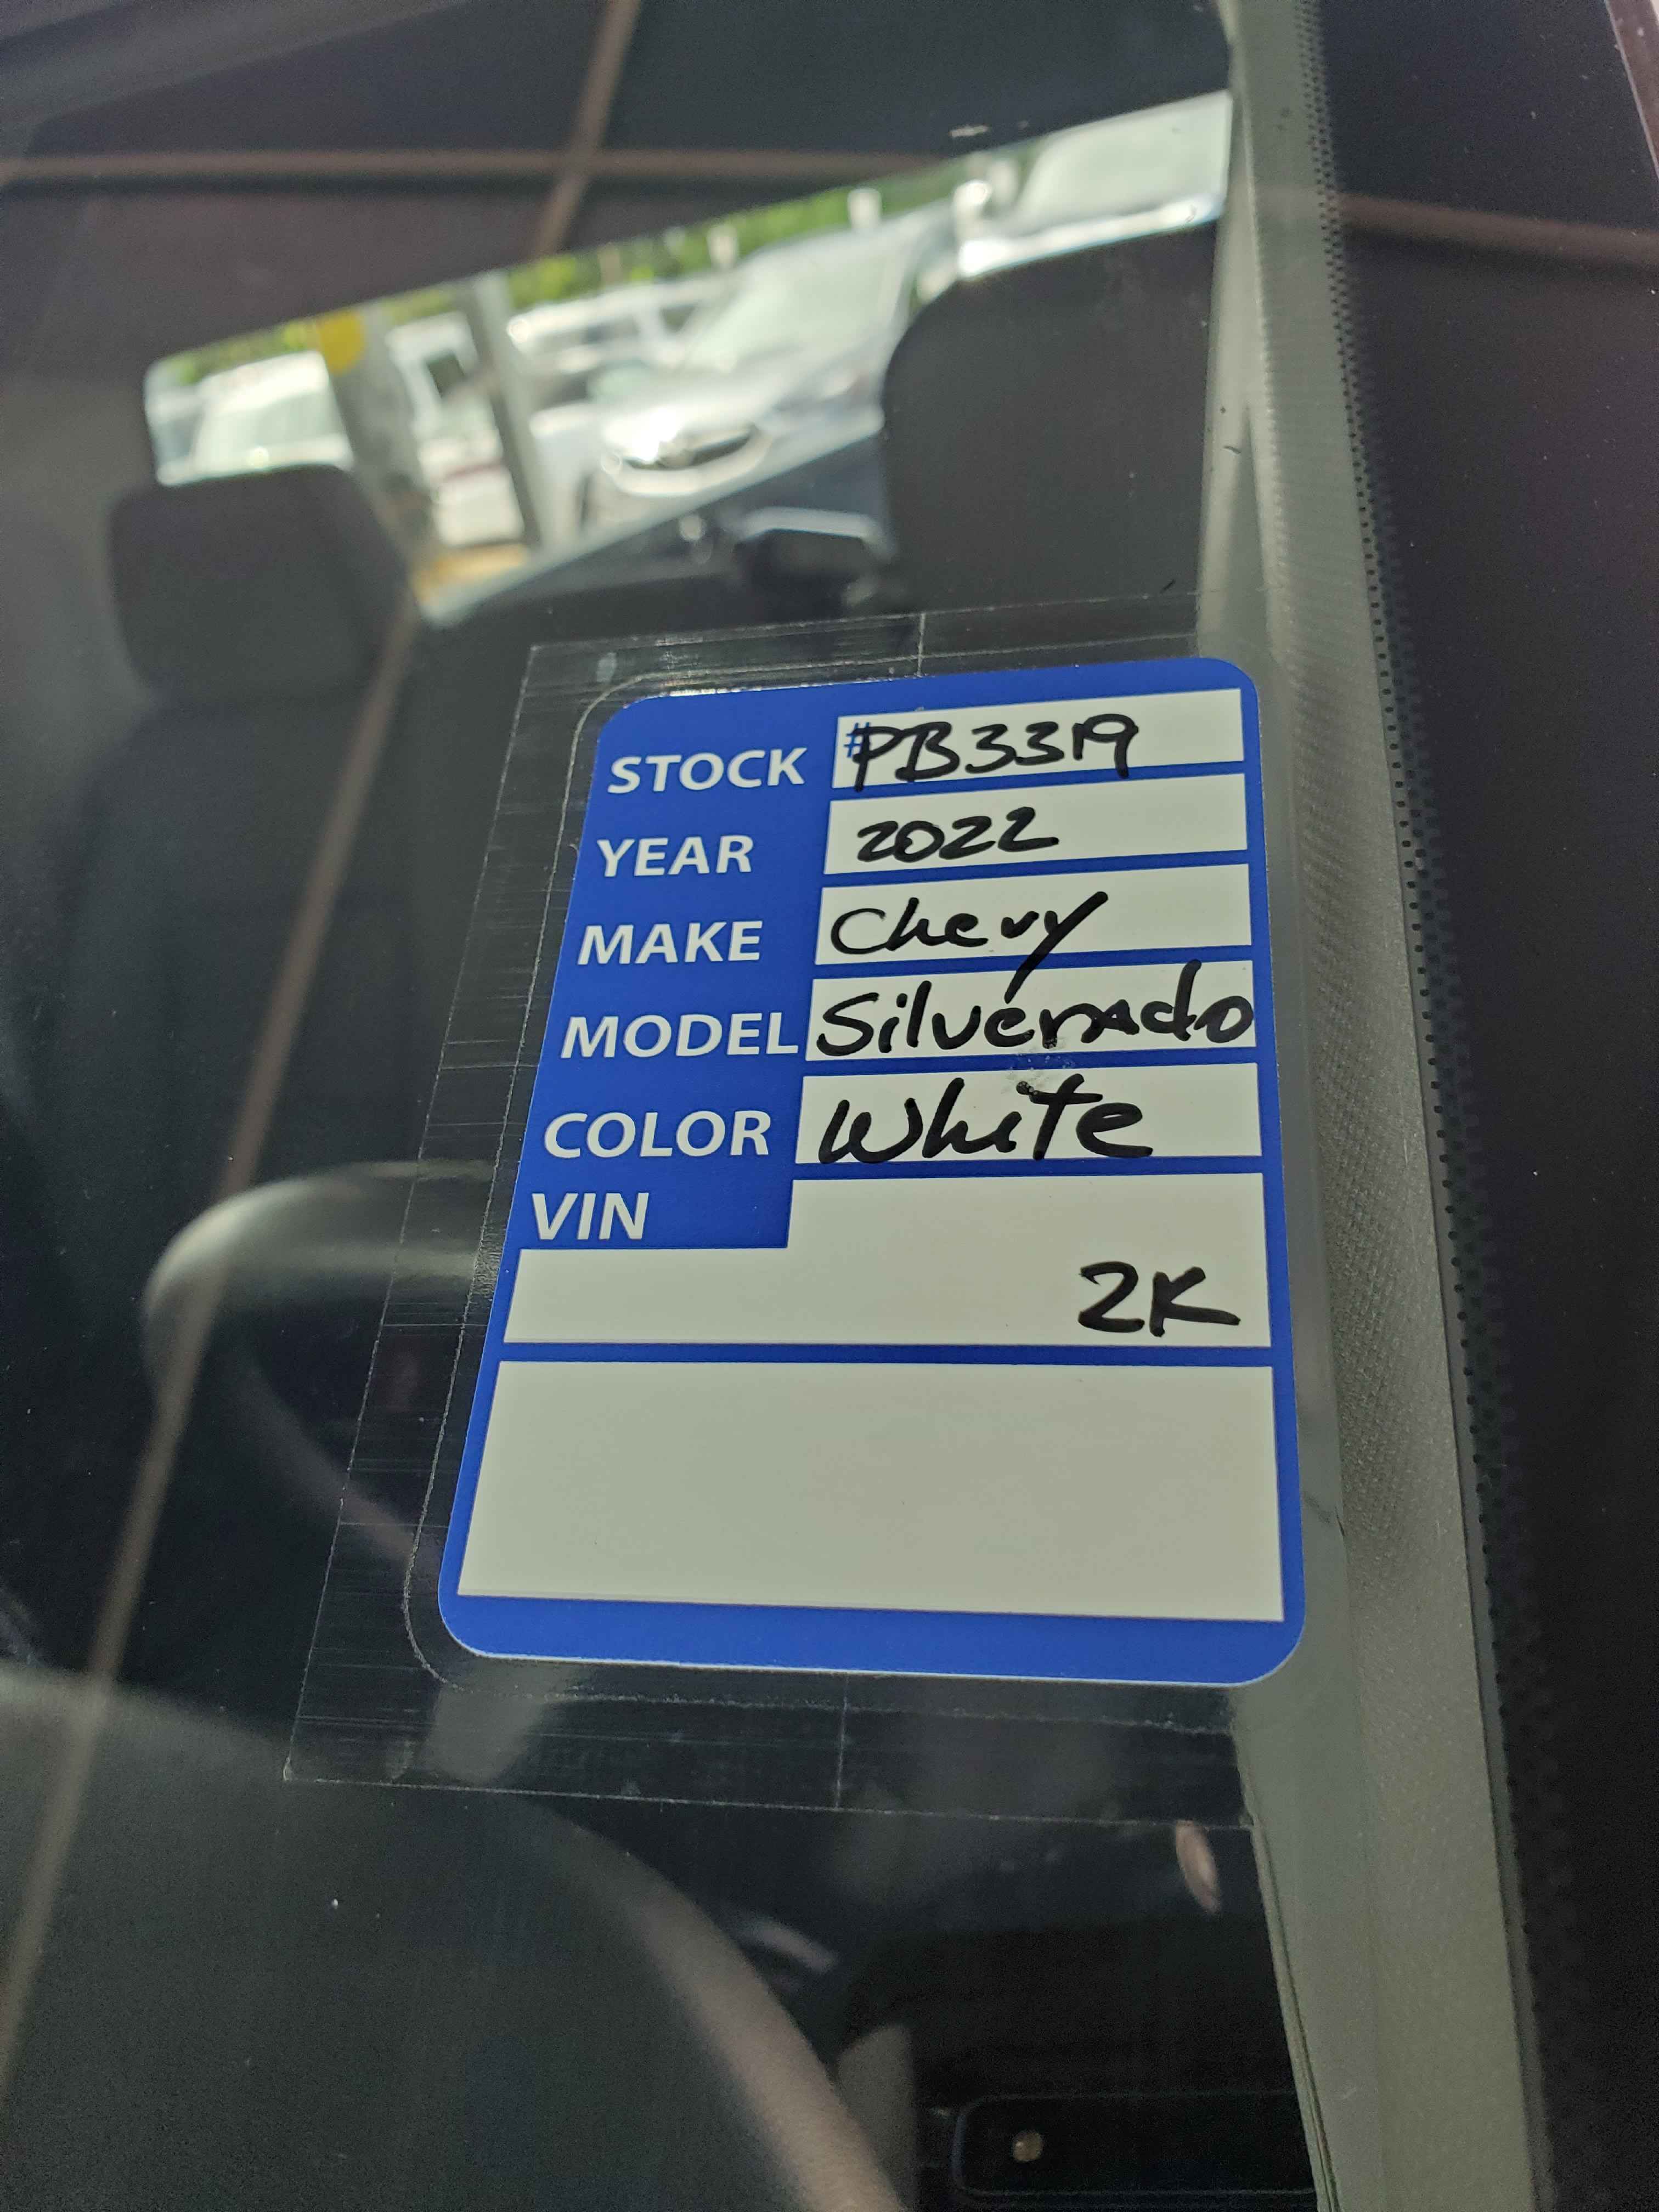 STOCK #PB3319
YEAR 2022
MAKE Chevy
MODEL Silverado
COLOR White
VIN
2K